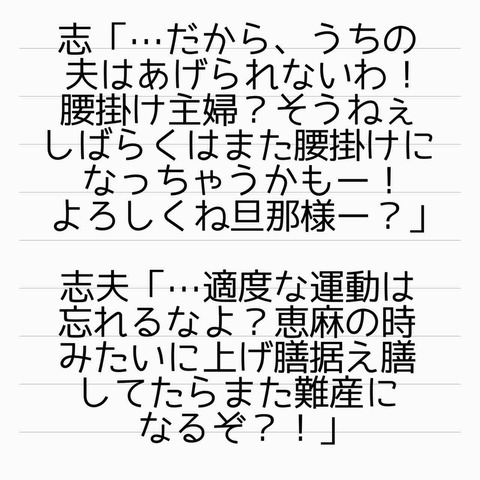 志「…だから、うちの
夫はあげられないわ！
腰掛け主婦？そうねぇ
しばらくはまた腰掛けに
なっちゃうかもー！
よろしくね旦那様ー？」
志夫「…適度な運動は
忘れるなよ？恵麻の時
みたいに上げ膳据え膳
してたらまた難産に
なるぞ？！」